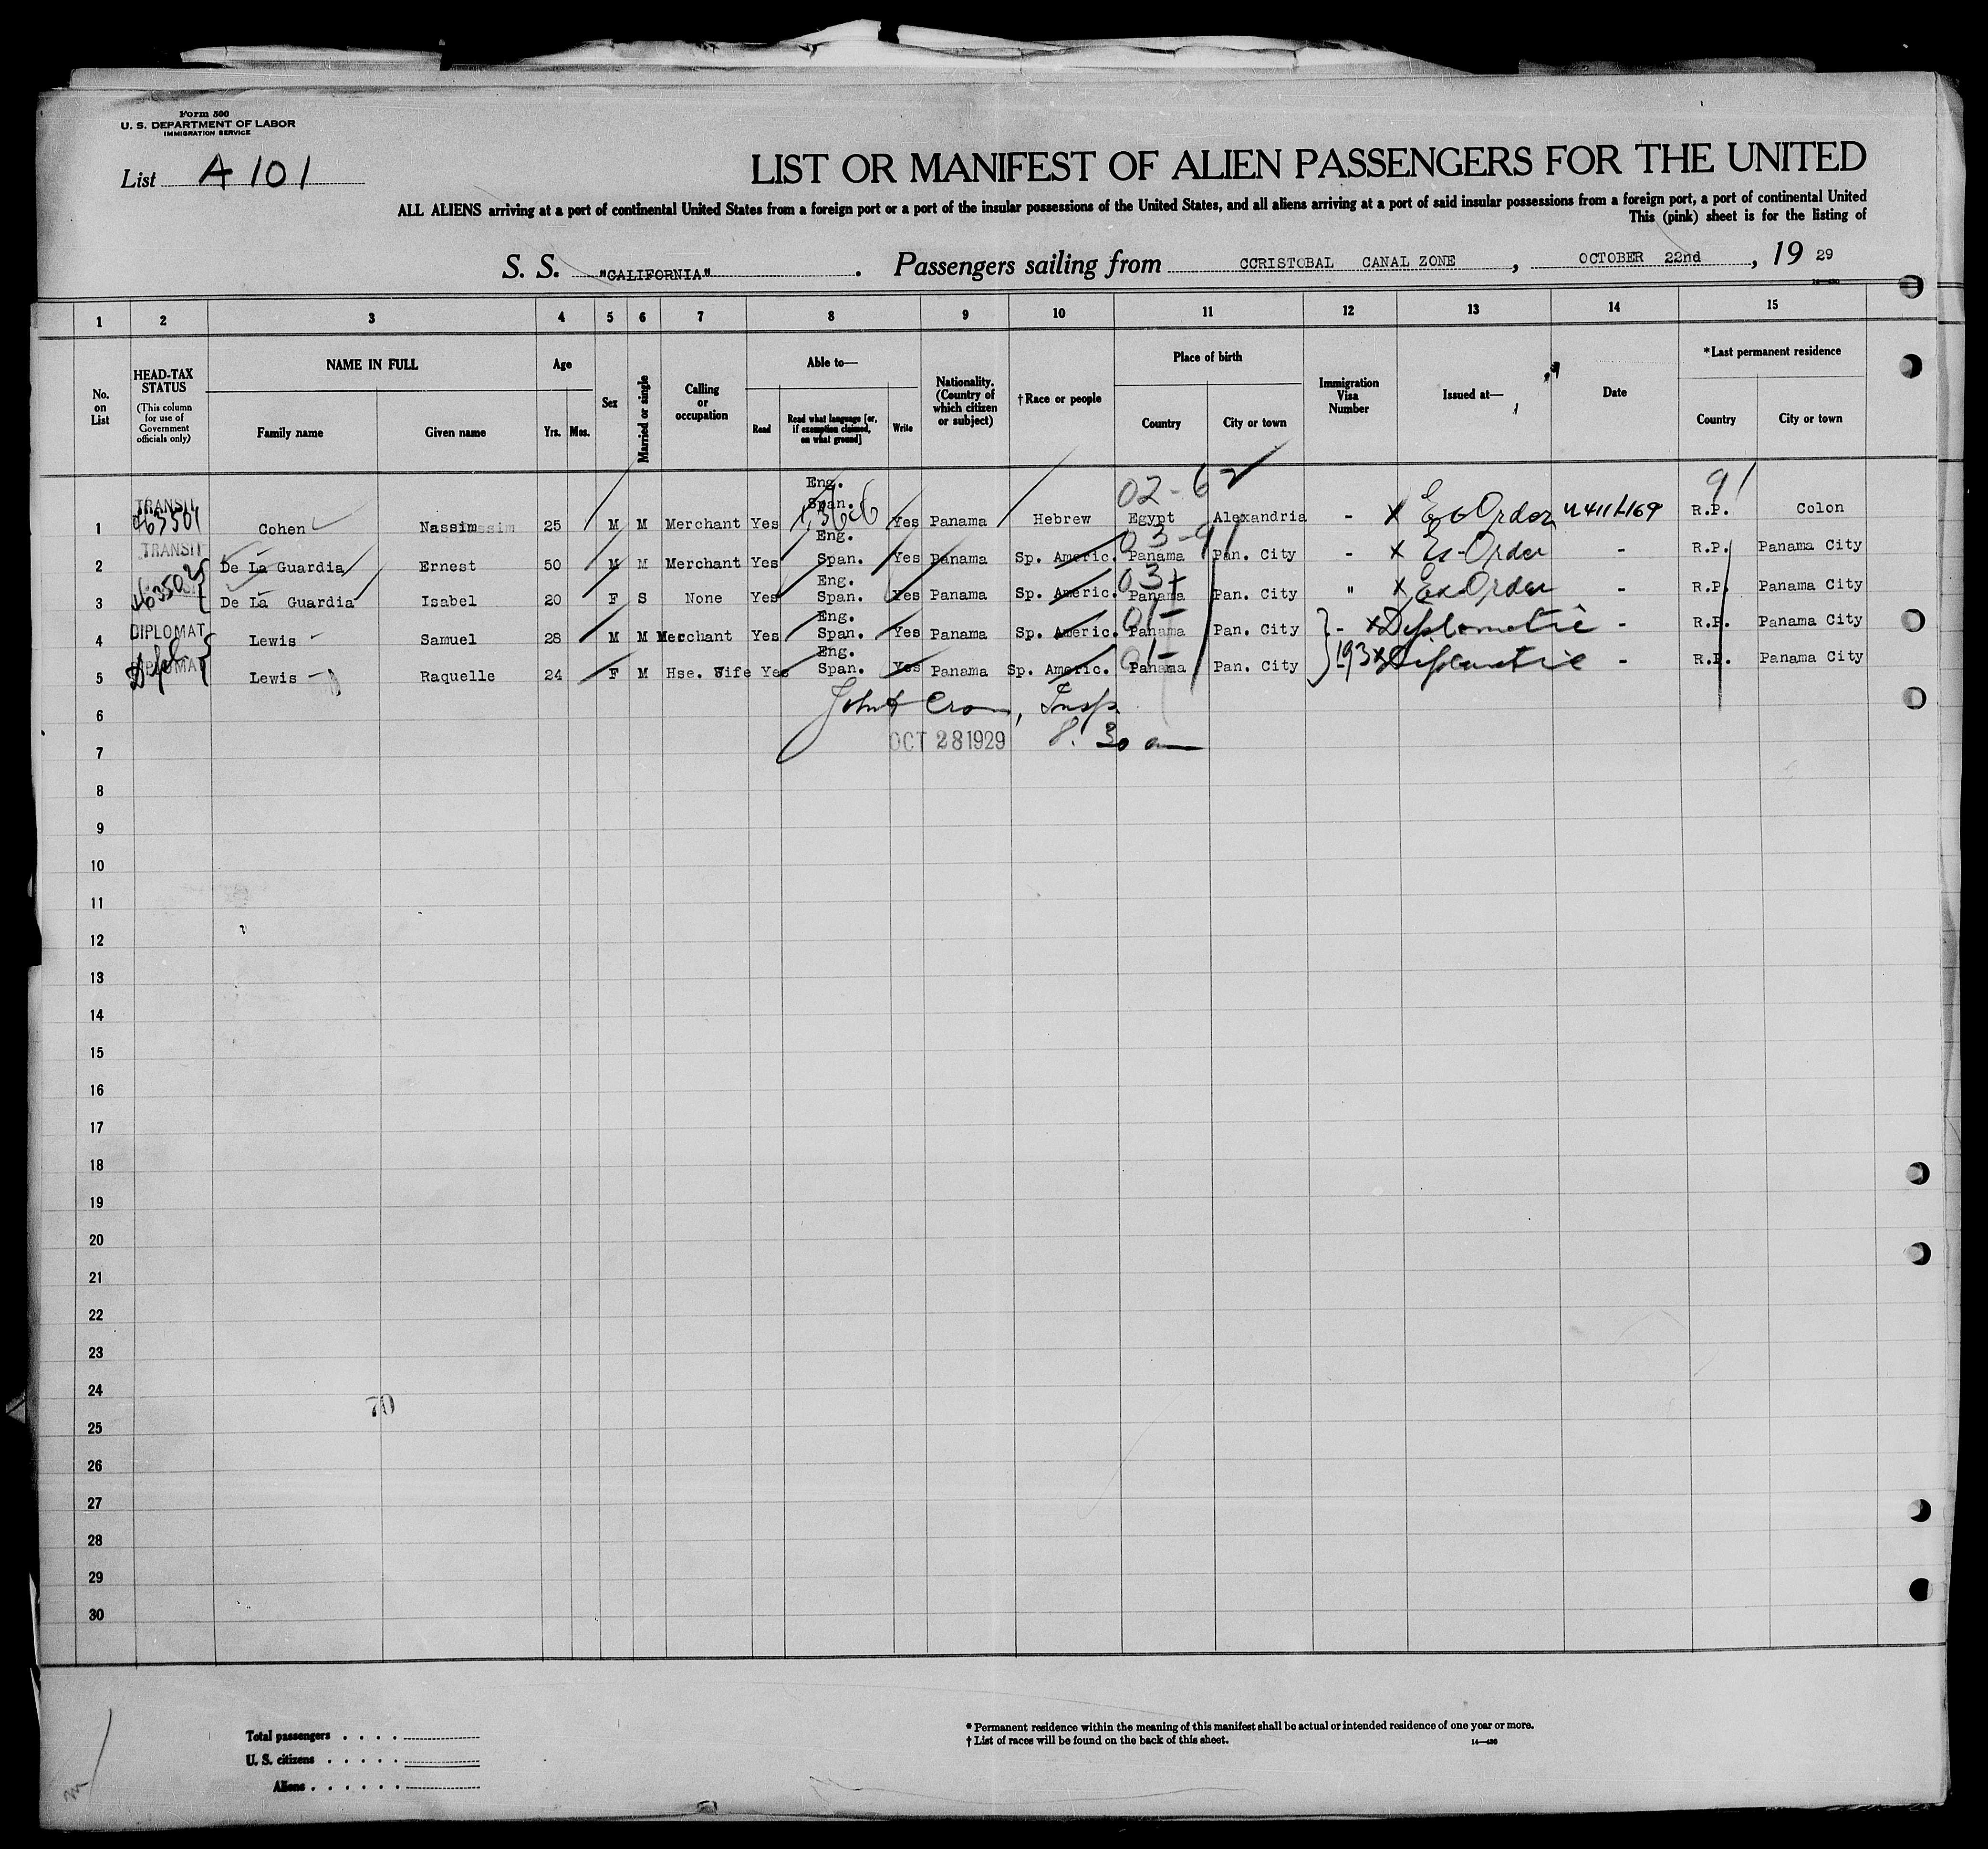 Form 500
U. S. DEPARTMENT OF LABOR
IMMIGRATION SERVICE
List A 101
LIST OR MANIFEST OF ALIEN PASSENGERS FOR THE UNITED
ALL ALIENS arriving at a port of continental United States from a foreign port or a port of the insular possessions of the United States, and all aliens arriving at a port of said insular possessions from a foreign port, a port of continental United
This (pink) sheet is for the listing of
S. S. "CALIFORNIA" . Passengers sailing from CCRISTOBAL CANAL ZONE , OCTOBER 22nd , 19 29
14—430
1 2 3 4 5 6 7 8 9 10 11 12 13 14 15
No. on List
HEAD-TAX STATUS
(This column for use of Government officials only)
NAME IN FULL
Family name Given name
Age
Yrs. Mos.
Sex
Married or single
Calling or occupation
Able to—
Read
Read what language [or, if exemption claimed, on what ground]
Write
Nationality. (Country of which citizen or subject)
†Race or people
Place of birth
Country City or town
Immigration Visa Number
Issued at—
Date
*Last permanent residence
Country City or town
02-62 91
1 TRANSIT Cohen Nassim 25 M M Merchant Yes Eng. Span. Yes Panama Hebrew Egypt Alexandria - X Ex Order R.P. Colon
2 TRANSIT De La Guardia Ernest 50 M M Merchant Yes Eng. Span. Yes Panama Sp. Americ. 03-91 Panama Pan. City - X Ex-Order - R.P. Panama City
3 De La Guardia Isabel 20 F S None Yes Eng. Span. Yes Panama Sp. Americ. Panama Pan. City " X Ex-Order - R.P. Panama City
4 DIPLOMAT Lewis Samuel 28 M M Merchant Yes Eng. Span. Yes Panama Sp. Americ. Panama Pan. City - X Diplomatic - R.P. Panama City
5 DIPLOMAT Lewis Raquelle 24 F M Hse. Wife Yes Eng. Span. Yes Panama Sp. Americ. Panama Pan. City 193 X Diplomatic - R.P. Panama City
6 Insp.
7 OCT 28 1929 8.30 am
8
9
10
11
12
13
14
15
16
17
18
19
20
21
22
23
24
70
25
26
27
28
29
30
Total passengers . . . .
U. S. citizens . . . . .
Aliens . . . . . .
* Permanent residence within the meaning of this manifest shall be actual or intended residence of one year or more.
† List of races will be found on the back of this sheet. 14—430